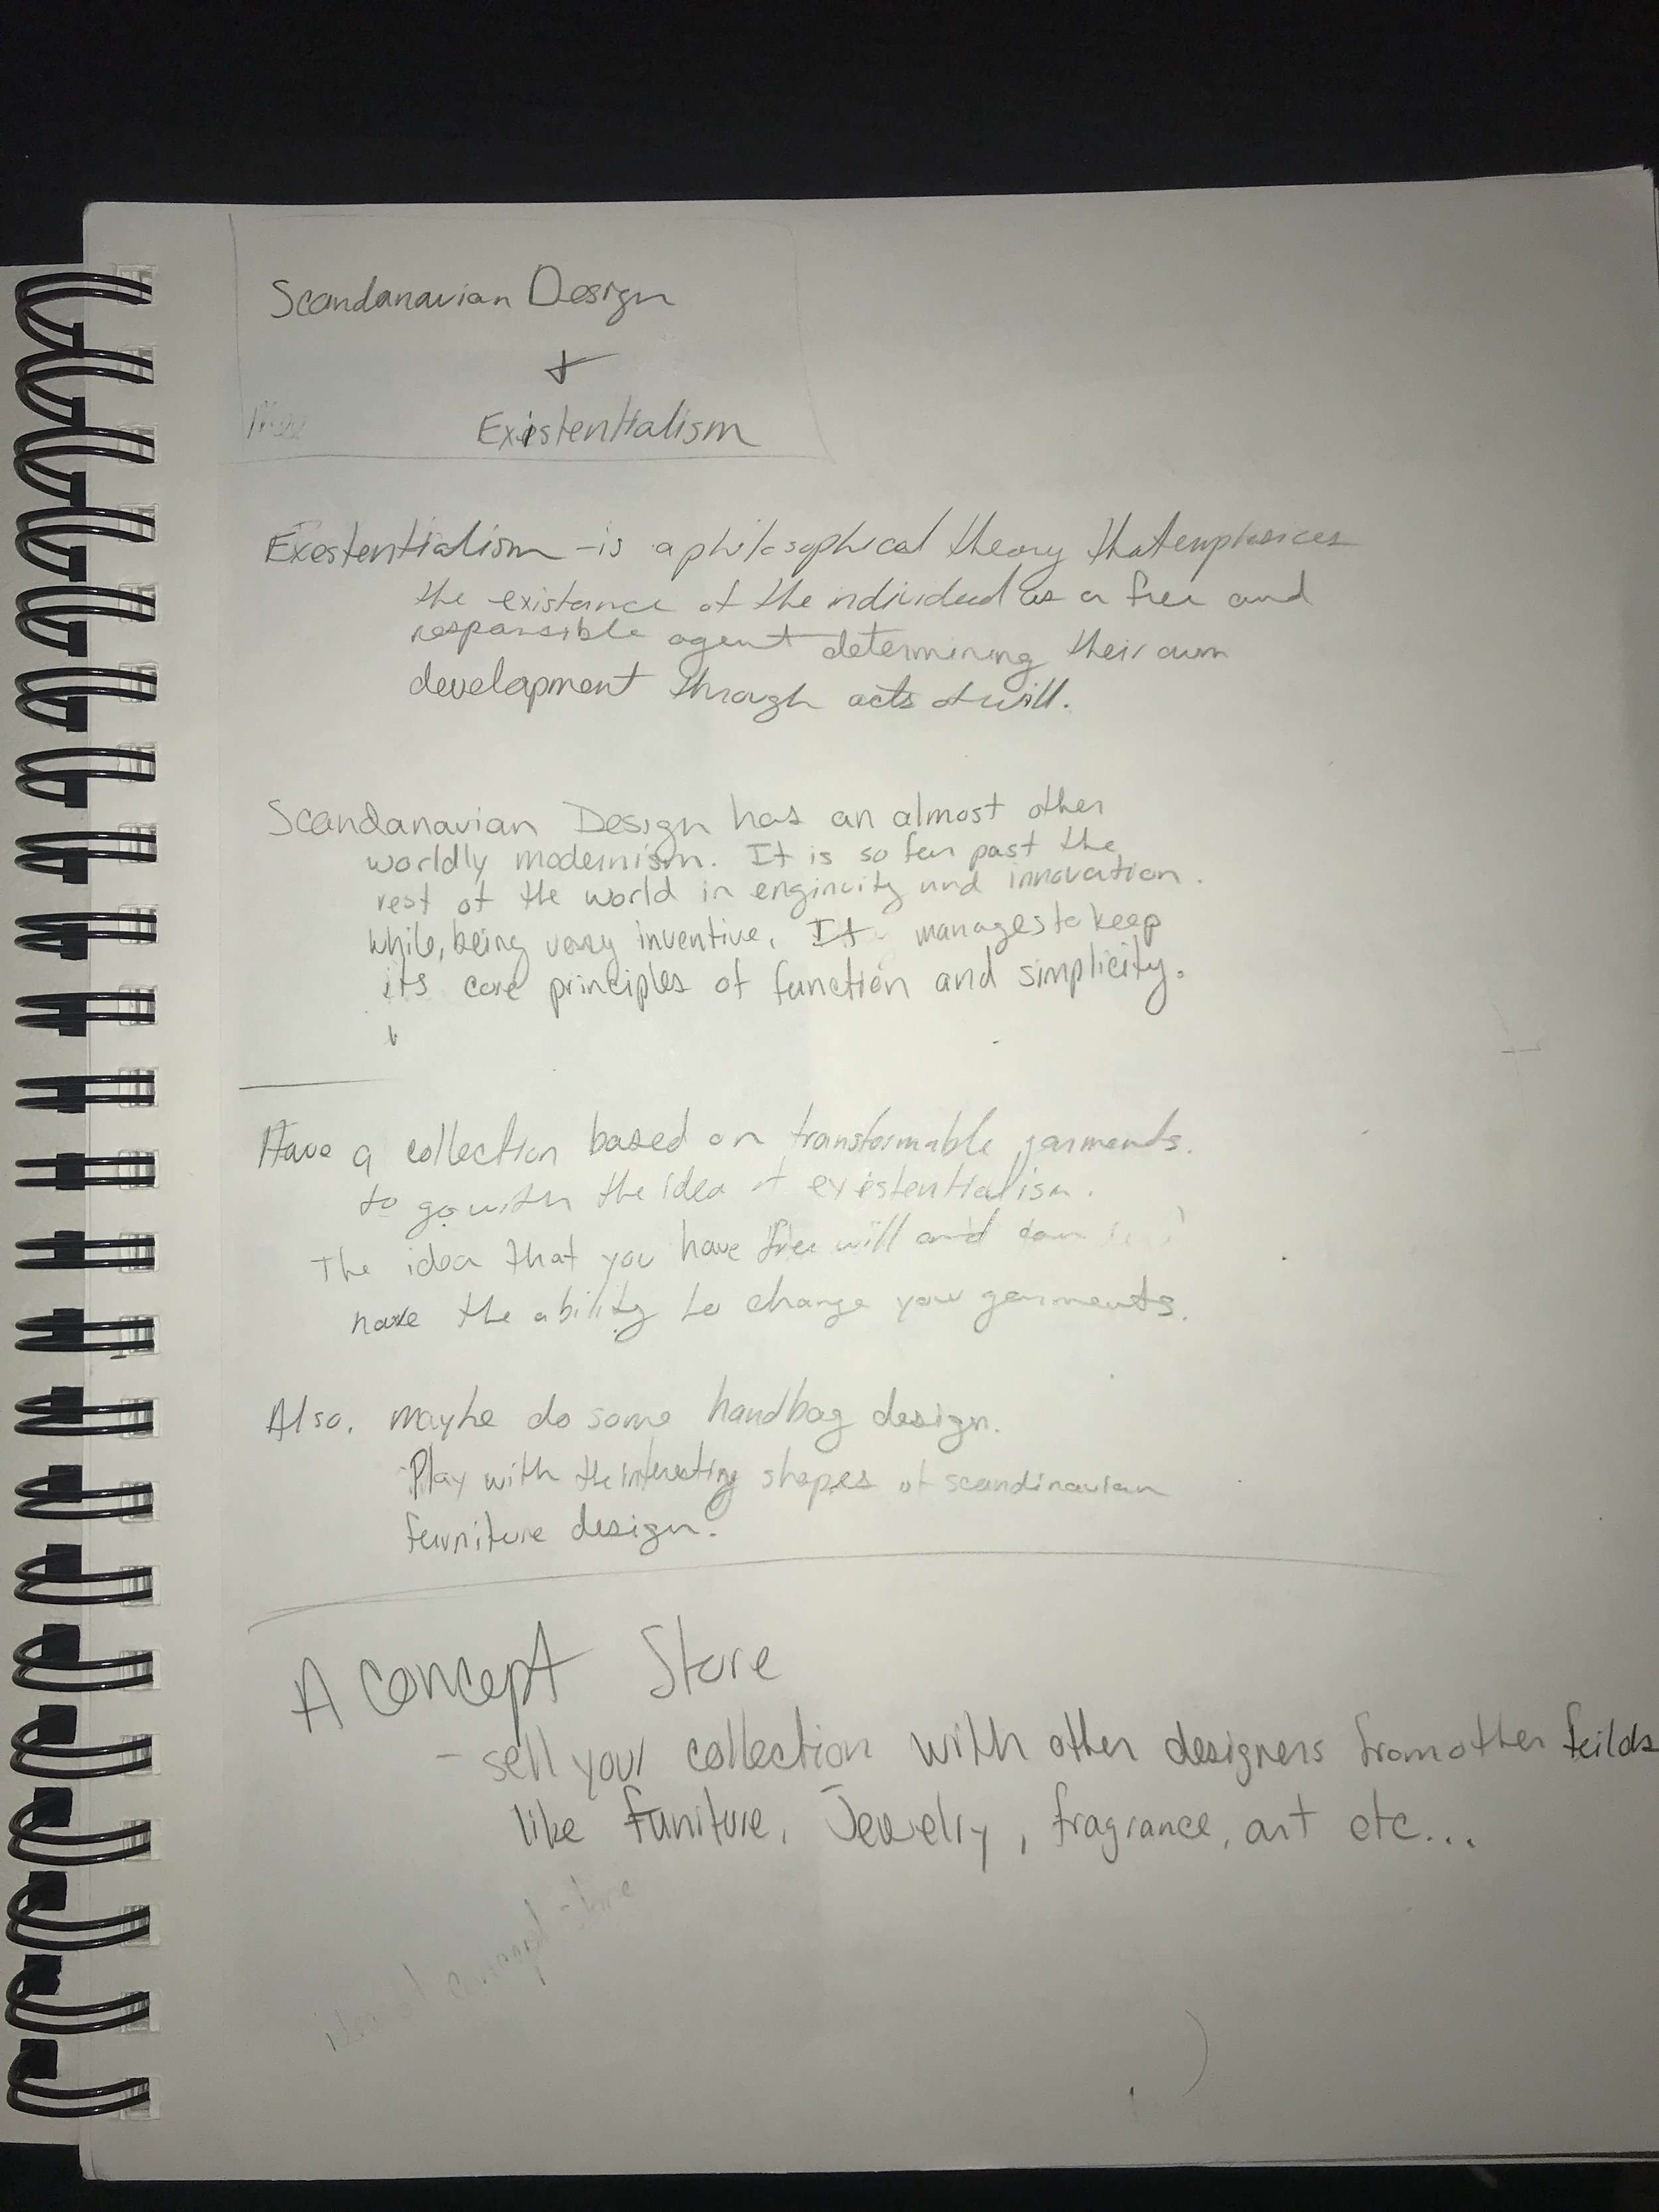 Scandanavian Design
+
Existentialism
Exestentialism - is a philosophical theory that emphasices
the existance of the individual as a free and
responsible agent determining their own
development through acts of will.
Scandanavian Design has an almost other
worldly modernism. It is so far past the
rest of the world in enginuity and innovation.
while, being very inventive. It manages to keep
its core principles of function and simplicity.
Have a collection based on transformable garments.
to go with the idea of existentialism.
The idea that you have free will and can
have the ability to change your garments.
Also. maybe do some handbag design.
Play with the interesting shapes of scandinavian
furniture design.
A concept Store
- sell your collection with other designers from other feilds
like funiture, Jewelry, fragrance, art etc...
concept store